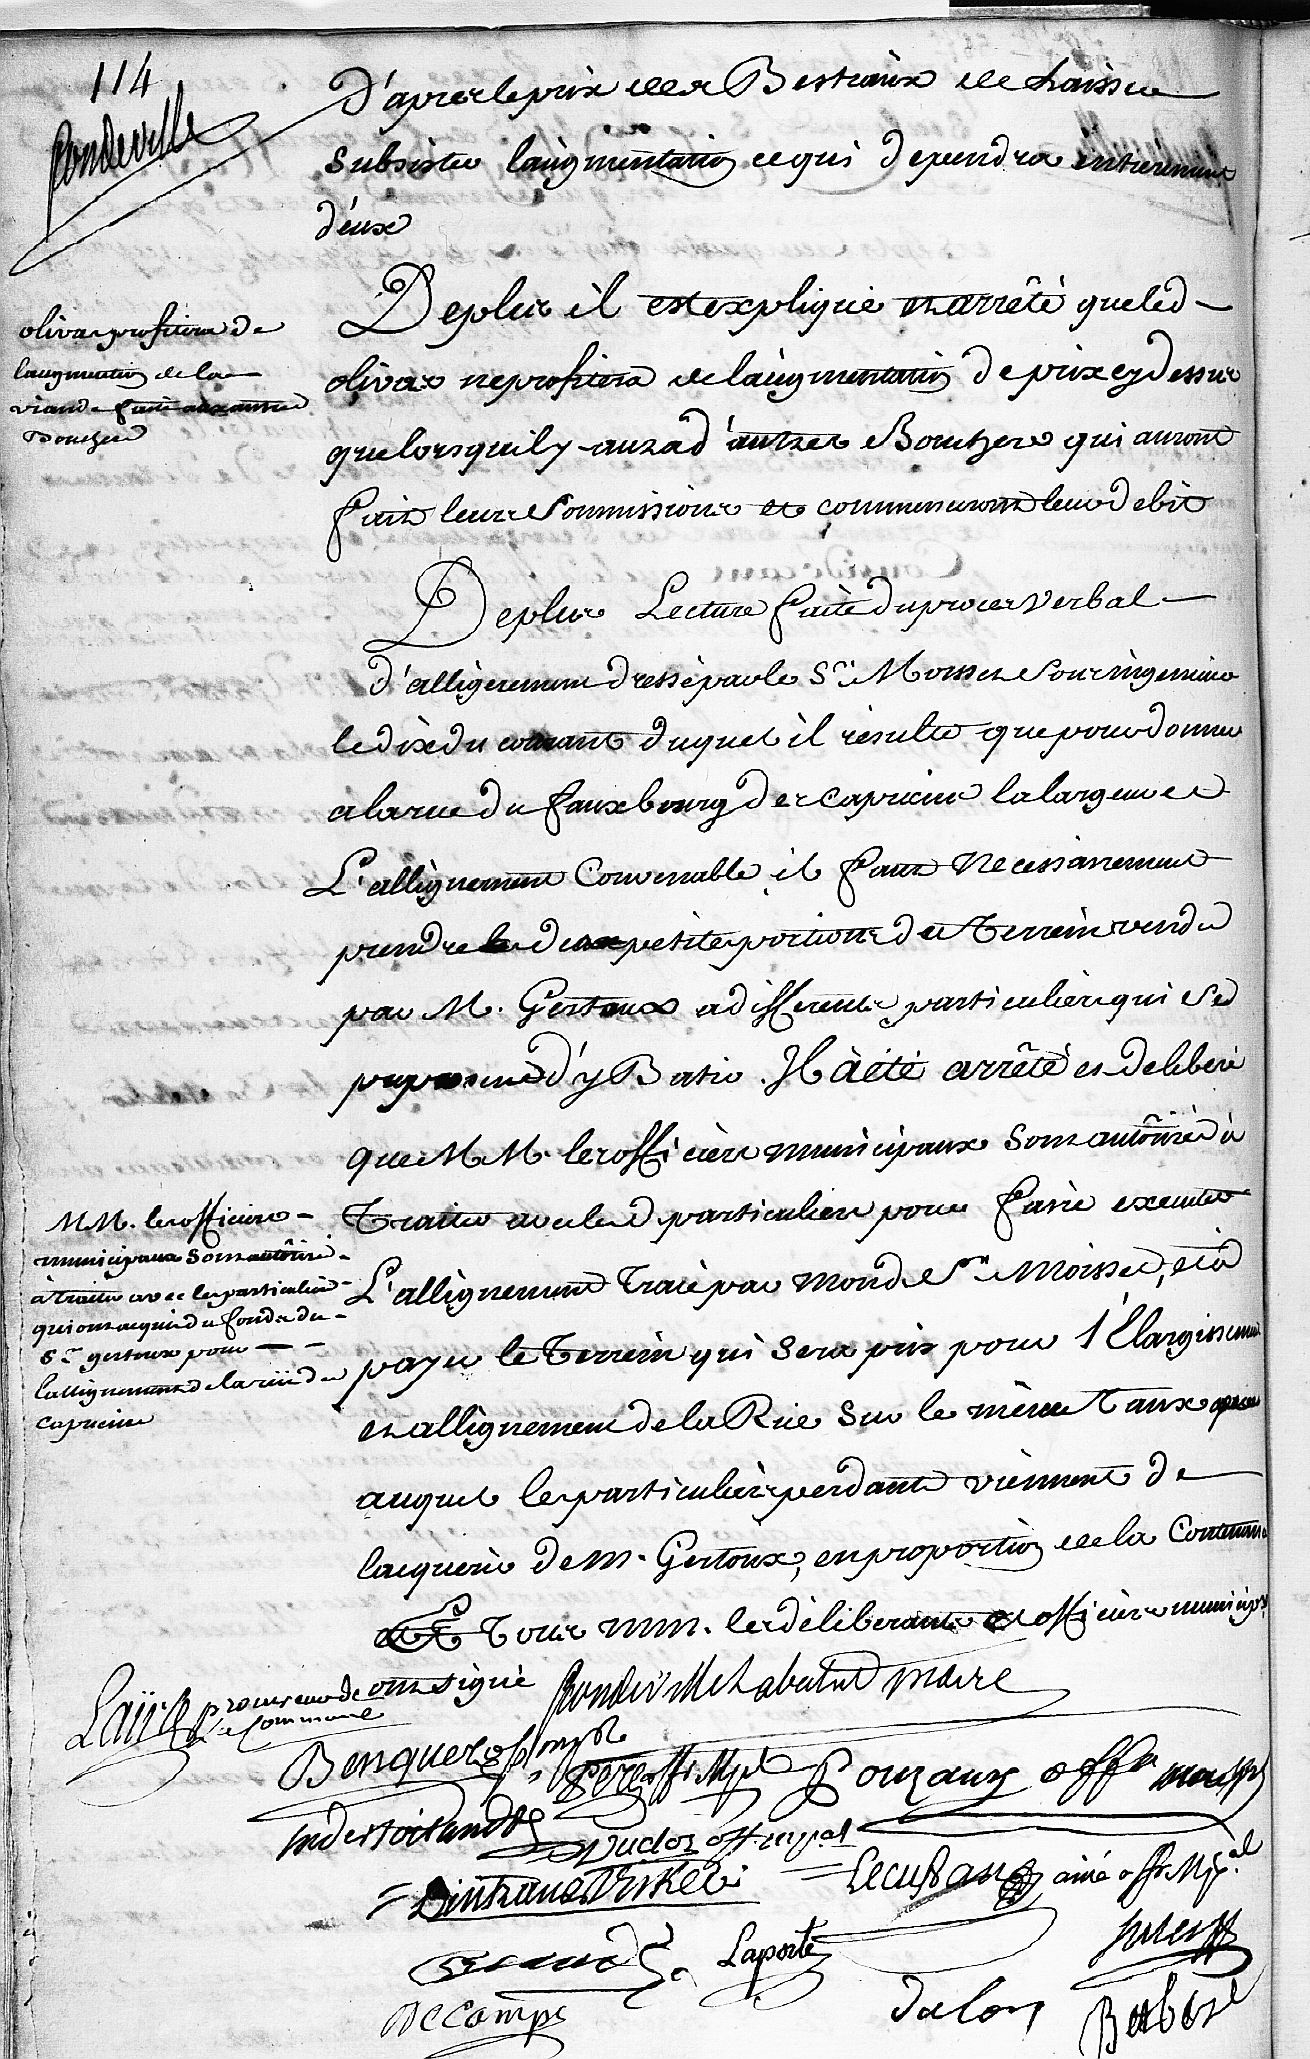 114
Rondeville
D'apres le prix des Bestiaux de Laisser
subsister laugmentation ce qui dependra entierement
d'eux
olivas profitera de
laugmention de la
viande faite aux autres
Bouchers
De plus il est expliqué et arrêté que led
olivas ne profitera de laugmentation de prix cy dessus
que lorsquil y aura d'autres Bouchers qui auront
fait leurs Soumissions et commenceront leur debit
De plus Lecture faite du proces Verbal
d'allignement dressé par le Sr Moisset Sour ingenieur
le dix du courant duquel il résulte que pour donner
a la rue du fauxbourg des capucins la largeur et
L'allignement Convenable il faut Necessairement
prendre des petites portions de Terrein vendu
par M. Gertoux a differents particuliers qui se
proposent d'y Batir. Il a été arrêté et deliberé
que MM. les officiers municipaux sont autorisés à
Traiter avec lesd particuliers pour faire executer
L'allignement Tracé par mond Sr Moisset, et à
payer le Terrein qui sera pris pour l'Elargissement
et allignement de la Rue Sur le même Taux
auquel les particuliers perdants viennent de
lacquerir de m. Gertoux, en proportion de la Contenance
MM. les officiers
municipaux sont autorisés
à traiter avec les particuliers
qui ont acquis du fonds du
Sr gertoux pour
lallignement de la rue des
capucins
Et Tous mm. les déliberants et officiers municipx
ont signé
Rondeville Labatut maire
procureur de
la Commune
Benquez off mpl
Peré off Mpl
Pouzaux offr municipl
off mpal
Lecussan ainé off. Mpal
Laporte
Decamps
dalos